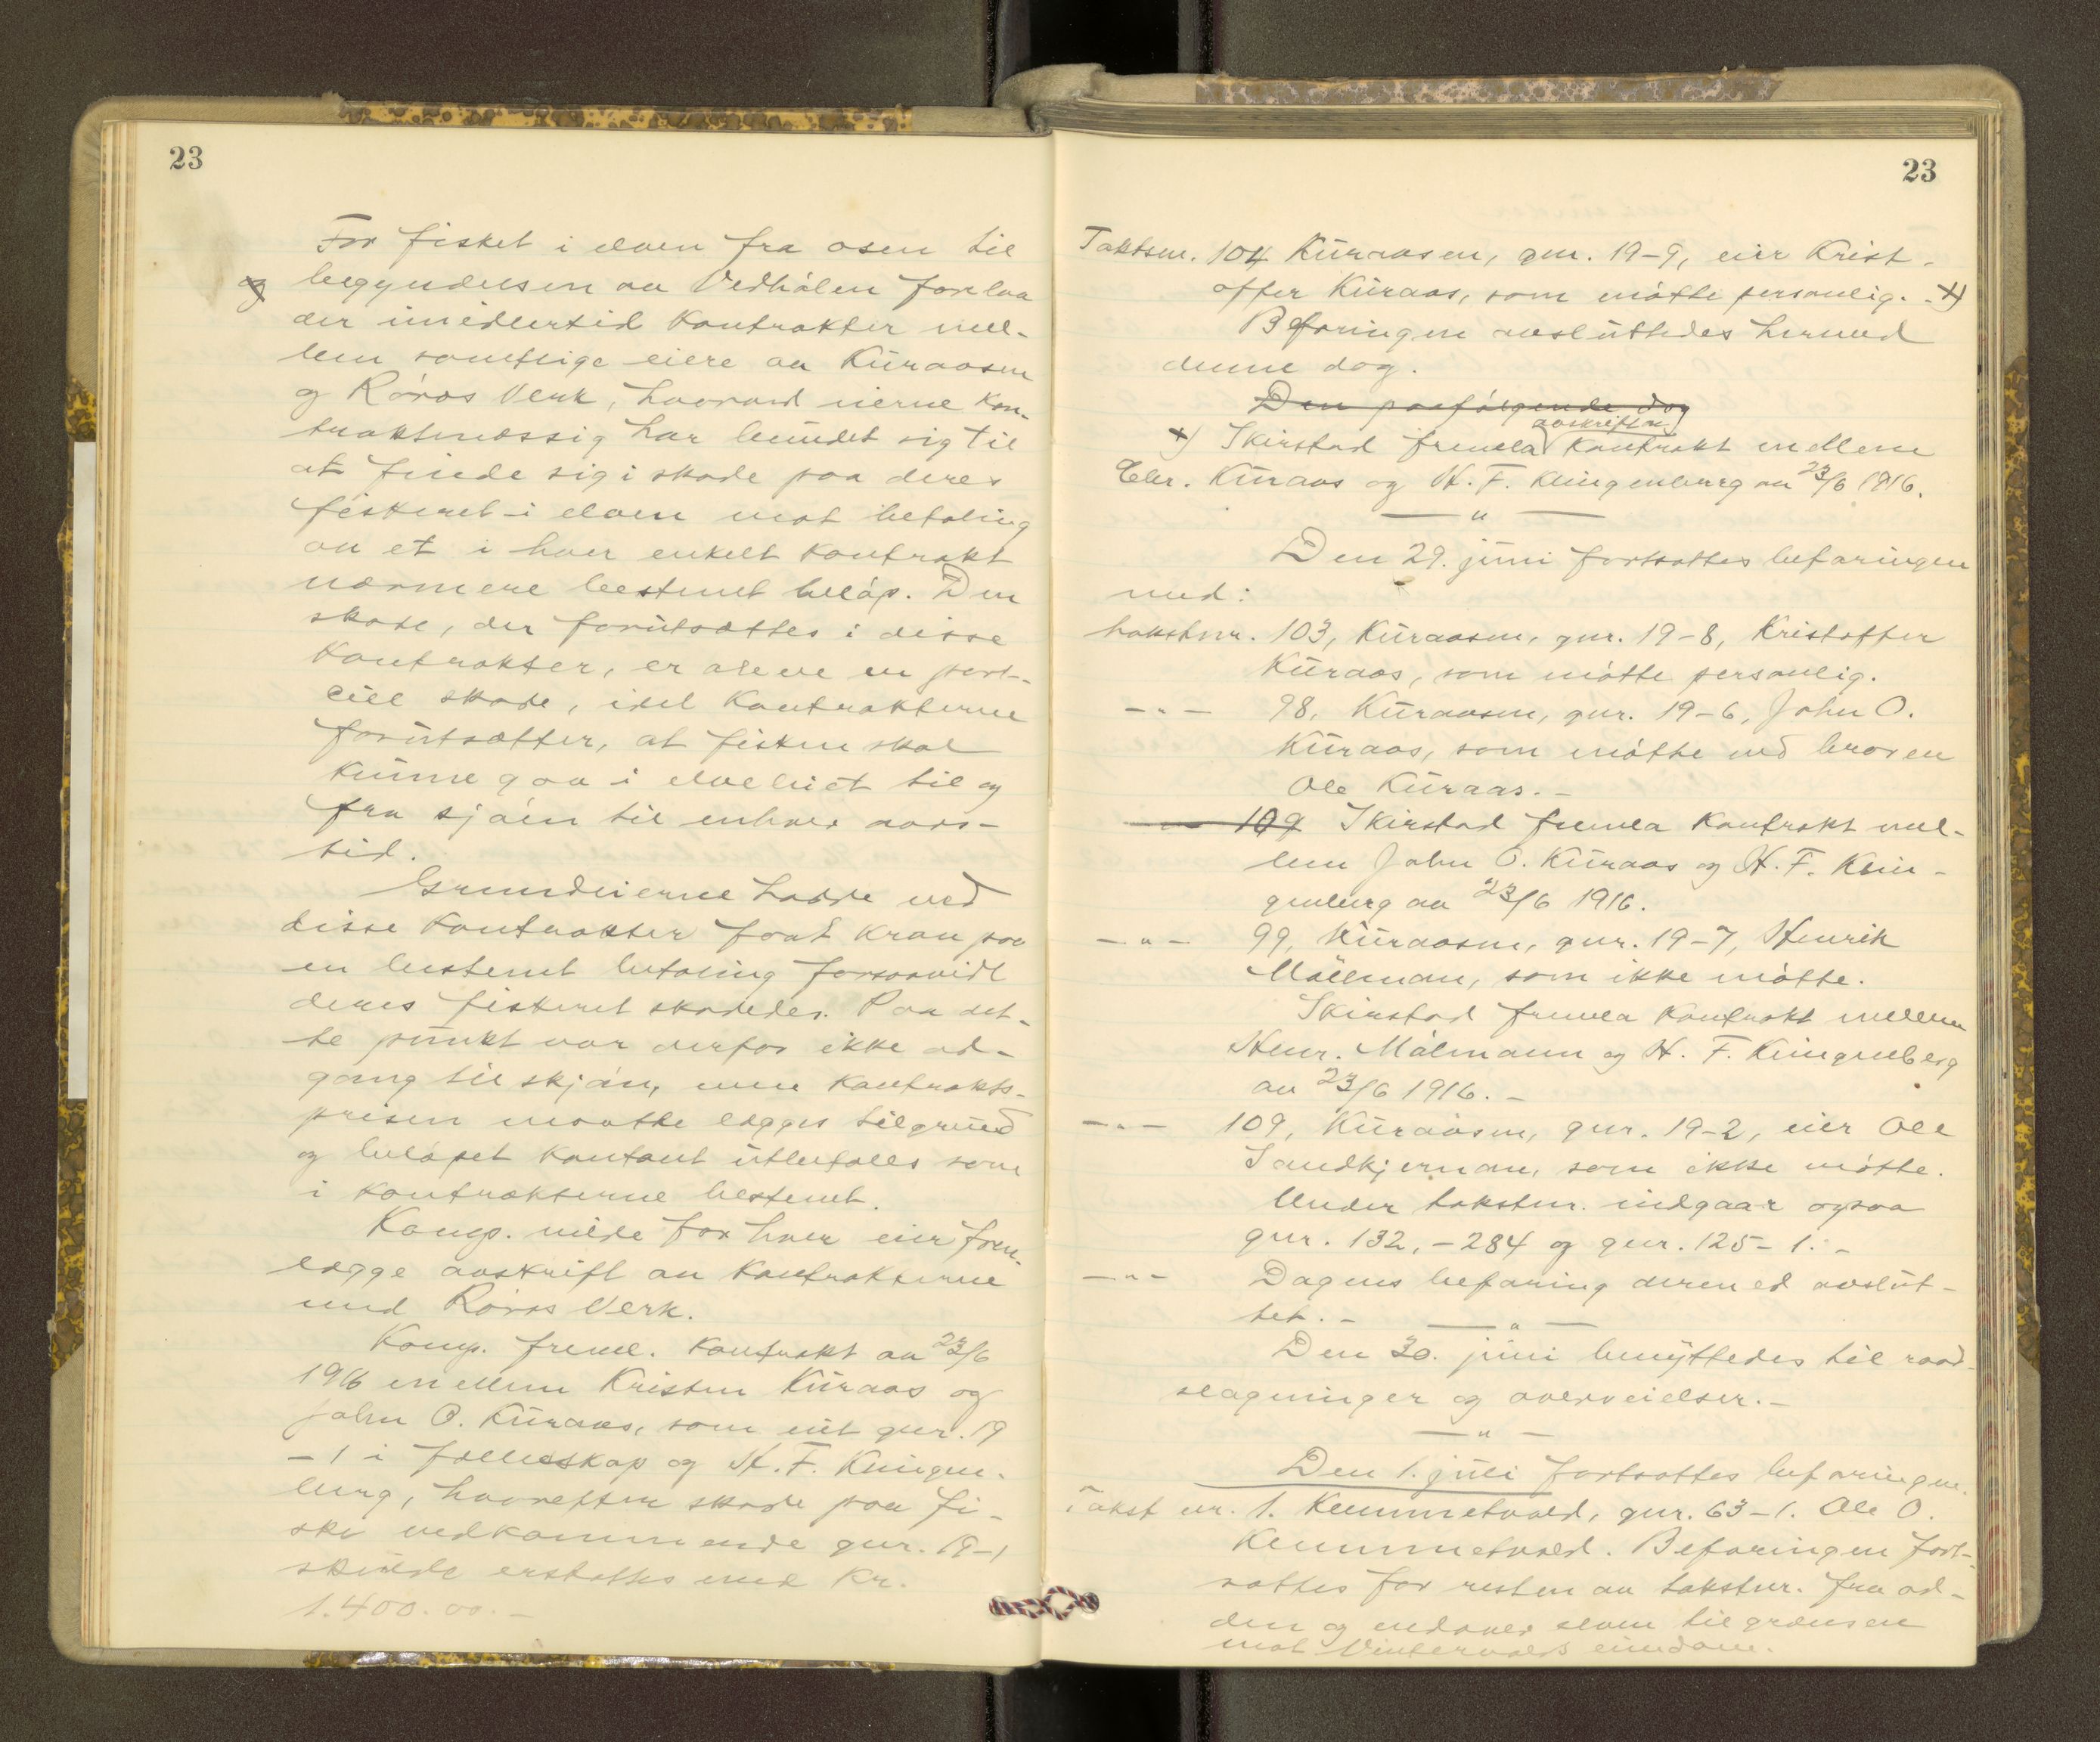 23
For fisket i elven fra osen til
og begyndelsen av Vedhølen forelaa
der imidlertid kontrakter mel-
lem samtlige eiere av Kuraasen
og Røros Verk, hvorved eierne kon-
traktmæssig har bundet sig til
at finde sig i skade paa deres
fiskeret i elven mot betaling
av et i hver enkelt kontrakt
nærmere bestemt beløp. Den
skade, der forutsættes i disse
kontrakter, er alene en parti-
ell skade, idet kontrakterne
forutsætter, at fisken skal
kunne gaa i elveleiet til og
fra sjøen til enhver aars-
tid.
Grundeierne hadde ved
disse kontrakter faat krav paa
en bestemt betaling forsaavidt
deres fiskeret skadedes. Paa det-
te punkt var derfor ikke ad-
gang til skjøn, men kontrakts-
prisen maatte lægges tilgrund
og beløpet kontant utbetales som
i kontrakterne bestemt.
Komp. vilde for hver eier frem-
lægge avskrift av kontrakterne
med Røros Verk.
Komp. freml. kontrakt av 23/6
1916 mellem Kristen Kuraas og
John O. Kuraas, som eiet gnr. 19
-1 i fællesskap og H. F. Klingen-
berg, hvorefter skade paa fi-
ske vedkommende gnr. 19-1
skulde erstattes med kr.
1.400.00.-
23
Takstnr. 104 Kuraasen, gnr. 19-9, eier Krist-
offer Kuraas, som møtte personlig. x)
Befaringen avsluttedes hermed
denne dag.
Den paafølgende dag
x) Skirstad fremla avskrift av kontrakt mellem
Chr. Kuraas og H. F. Klingenberg av 23/6 1916.
— " —
Den 29. juni fortsattes befaringen
med:
takstnr. 103, Kuraasen, gnr. 19-8, Kristoffer
Kuraas, som møtte personlig.
— " — 98, Kuraasen, gnr. 19-6, John O.
Kuraas, som møtte ved broren
Ole Kuraas.-
— " — 109 Skirstad fremla kontrakt mel-
lem John O. Kuraas og H. F. Klin-
genberg av 23/6 1916.
— " — 99, Kuraasen, gnr. 19-7, Henrik
Møllman, som ikke møtte.
Skirstad fremla kontrakt mellem
Henr. Målmann og H. F. Klingenberg
av 23/6 1916.-
— " — 109, Kuraasen, gnr. 19-2, eier Ole
Sandkjernan, som ikke møtte.
Under takstnr. indgaar ogsaa
gnr. 132,-284 og gnr. 125-1.-
— " — Dagens befaring dermed avslut-
tet.- — " —
Den 30. juni benyttedes til raad-
slagninger og overveielser.-
— " —
Den 1. juli fortsattes befaringen.
Takst nr. 1. Kummelvold, gnr. 63-1. Ole O.
Kummelvold. Befaringen fort-
sattes for resten av takstnr. fra od-
den og nedover elven til grænsen
mot Vintervolds eiendom.